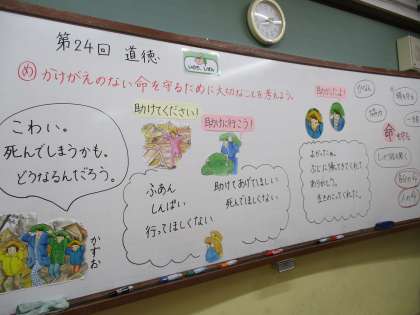 第24回 道徳
め かけがえのない命を守るために大切なことを考えよう。
こわい。
死んでしまうかも。
どうなるんだろう。
かずお
助けてください!
助けに行こう!
ふあん
しんぱい
行ってほしくない
助けてあげてほしい
死んでほしくない
助かったよ!
よかったね。
ぶじに帰ってきてくれて
ありがとう。
協力
命